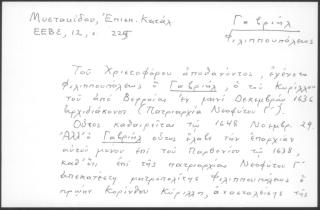 Μυστακίδου, Ἐπισκ. Κατάλ
Γαβριήλ
ΕΕΒΣ, 12, σ.
Φιλιππουπόλεως
Τοῦ Χριστοφόρου ἀποθανόντος, ἐγένετο
Φιλιππουπόλεως ὁ Γαβριήλ, ὁ τοῦ Κυρίλλου
τοῦ ἀπὸ Βερροίας ἐν μηνὶ Δεκεμβρίῳ 1636
ἀρχιδιάκονος (Πατριαρχία Νεοφύτου Γ΄).
Οὗτος καθαιρεῖται τῷ 1648 Νοεμβρ. 29.
Ἀλλ' ὁ Γαβριήλ οὗτος ἔλαβε τὴν ἐπαρχίαν
αὐτοῦ μόνον ἐπὶ τοῦ Παρθενίου τῷ 1638,
καθ' ὅτι ἐπὶ τῆς πατριαρχίας Νεοφύτου Γ΄
ἀπεκατέστη μητροπολίτης Φιλιππουπόλεως ὁ
πρώην Κορίνθου Κύριλλος, ἀνασταλείσης τῆς